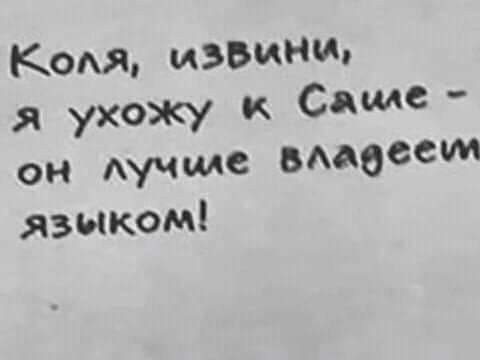 Коля, извини,
я ухожу к Саше -
он лучше владеет
языком!